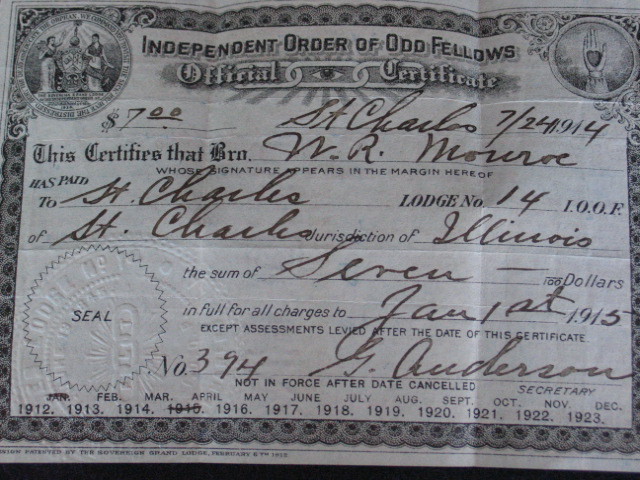 INDEPENDENT ORDER OF ODD FELLOWS
Official Certificate
$ 7.00 St Charles 7/24 1914
This Certifies that Bro. W. R. Monroe
WHOSE SIGNATURE APPEARS IN THE MARGIN HEREOF
HAS PAID
To St. Charles LODGE No. 14 I.O.O.F.
of St. Charles Jurisdiction of Illinois
the sum of Seven — 100 Dollars
in full for all charges to Jan 1st 1915
EXCEPT ASSESSMENTS LEVIED AFTER THE DATE OF THIS CERTIFICATE
SEAL
No. 394 G. Anderson
NOT IN FORCE AFTER DATE CANCELLED SECRETARY
JAN. FEB. MAR. APRIL MAY JUNE JULY AUG. SEPT. OCT. NOV. DEC.
1912. 1913. 1914. 1915. 1916. 1917. 1918. 1919. 1920. 1921. 1922. 1923.
PATENTED BY THE SOVEREIGN GRAND LODGE, FEBRUARY 6TH 1912.